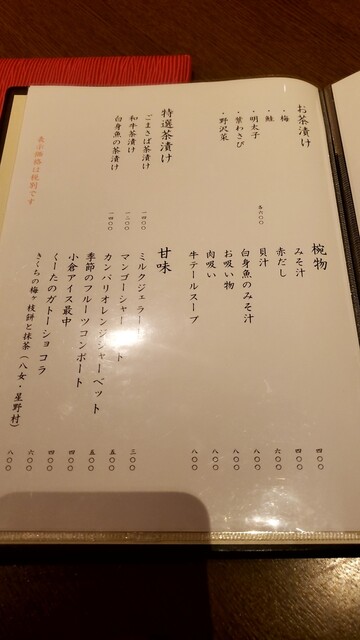 お茶漬け
・梅
・鮭
・明太子
・葉わさび
・野沢菜
各六〇〇
特選茶漬け
ごまさば茶漬け 一四〇〇
和牛茶漬け 一二〇〇
白身魚の茶漬け 一四〇〇
表示価格は税別です
椀物
みそ汁 四〇〇
赤だし 四〇〇
貝汁 六〇〇
白身魚のみそ汁 八〇〇
お吸い物
肉吸い 八〇〇
牛テールスープ 八〇〇
甘味
ミルクジェラート 三〇〇
マンゴーシャーベット 五〇〇
カンパリオレンジシャーベット 五〇〇
季節のフルーツコンポート
小倉アイス最中 四〇〇
くーたのガトーショコラ 六〇〇
きくちの梅ヶ枝餅と抹茶(八女・星野村) 八〇〇